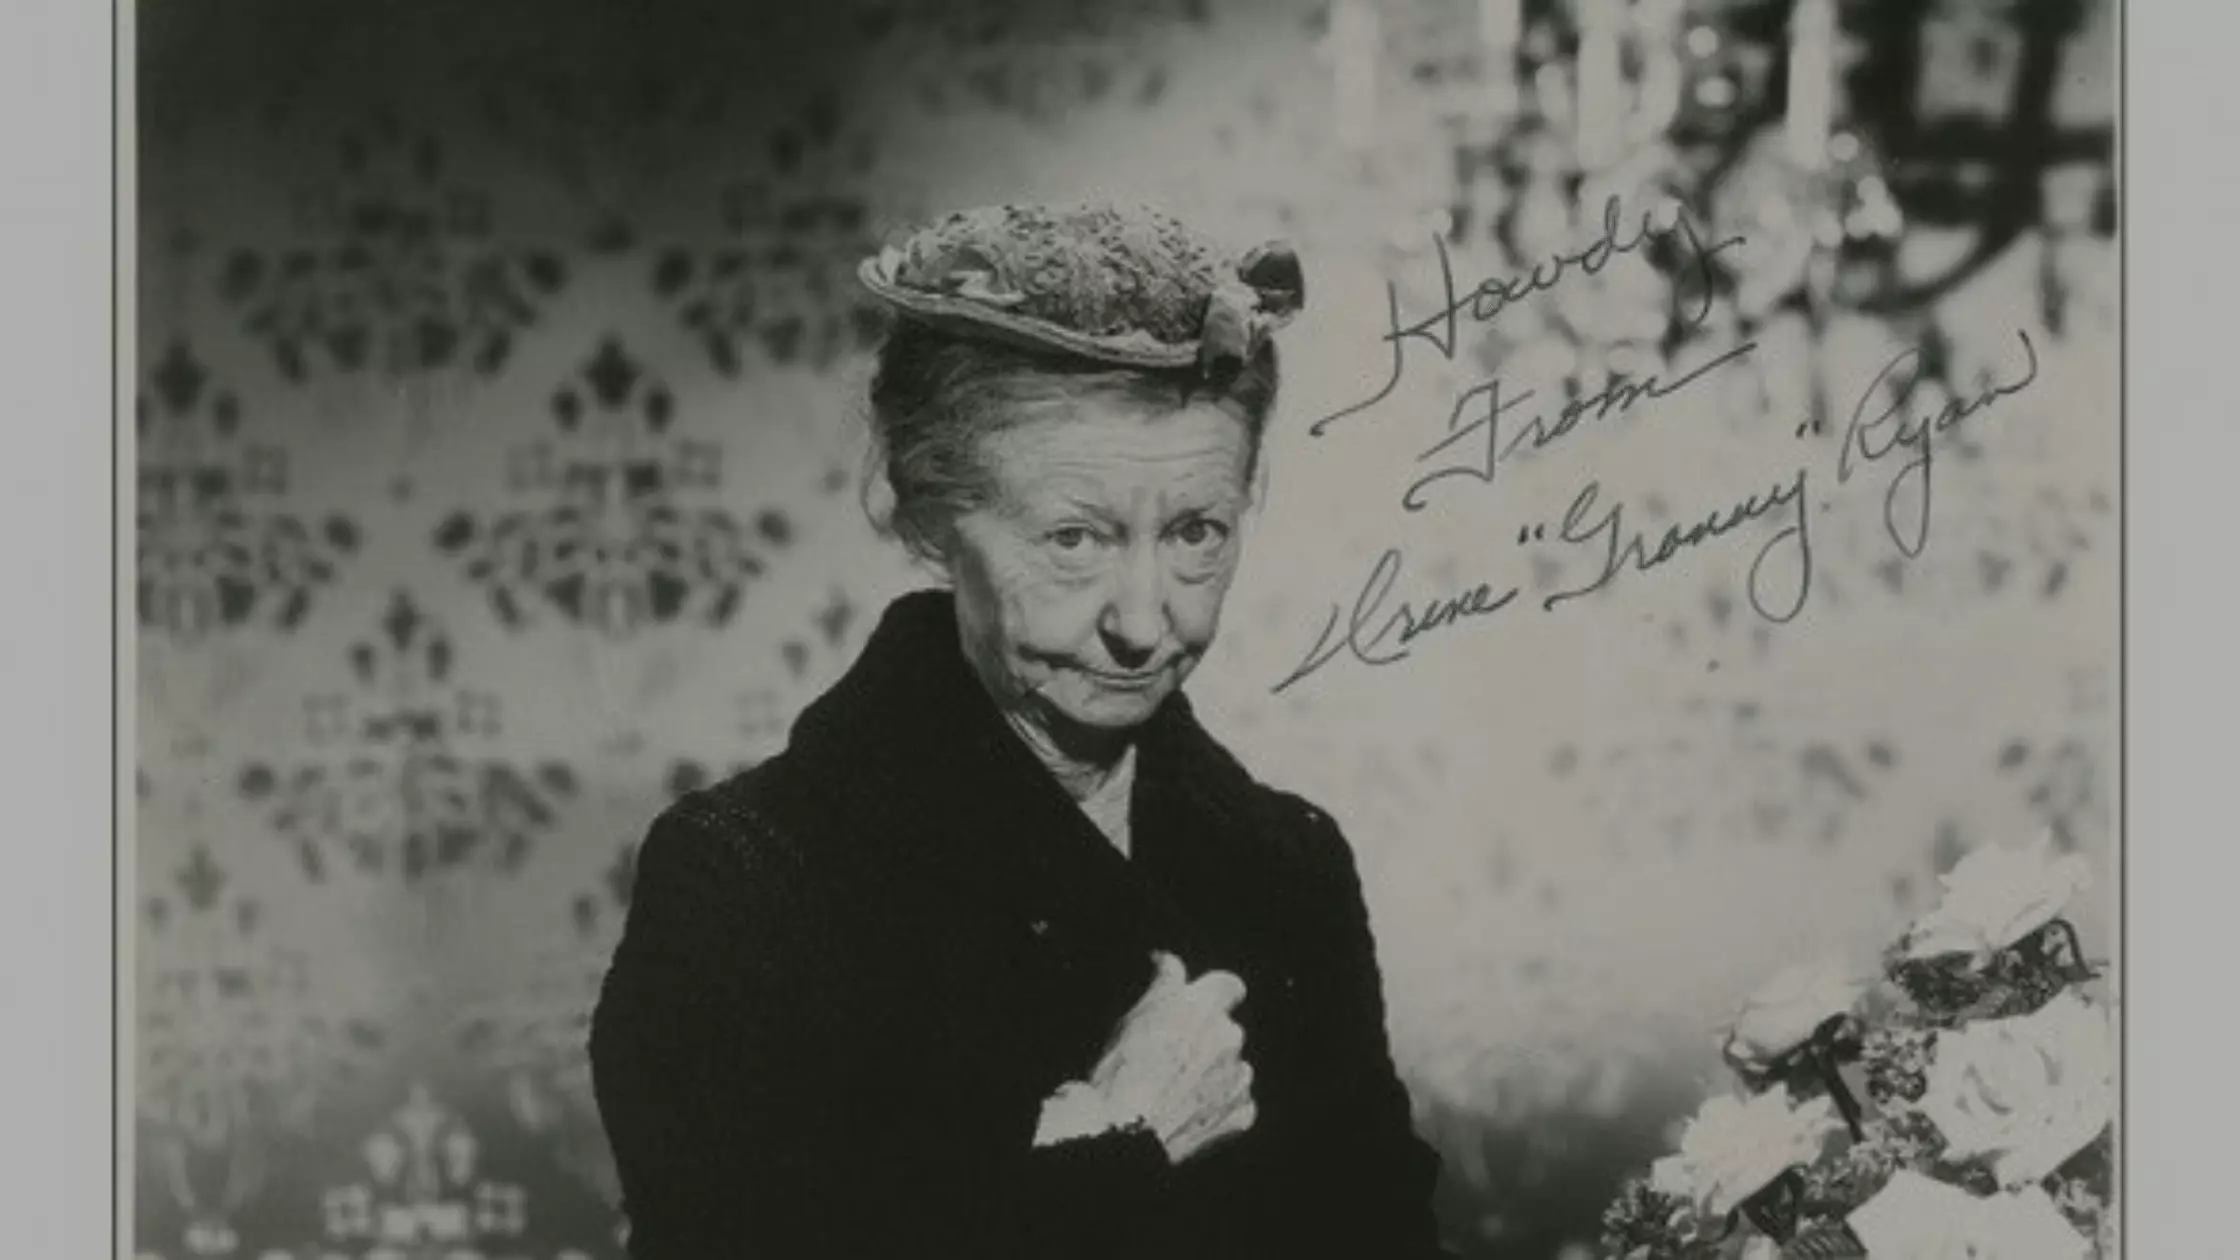 Howdy
From
Irene "Granny" Ryan